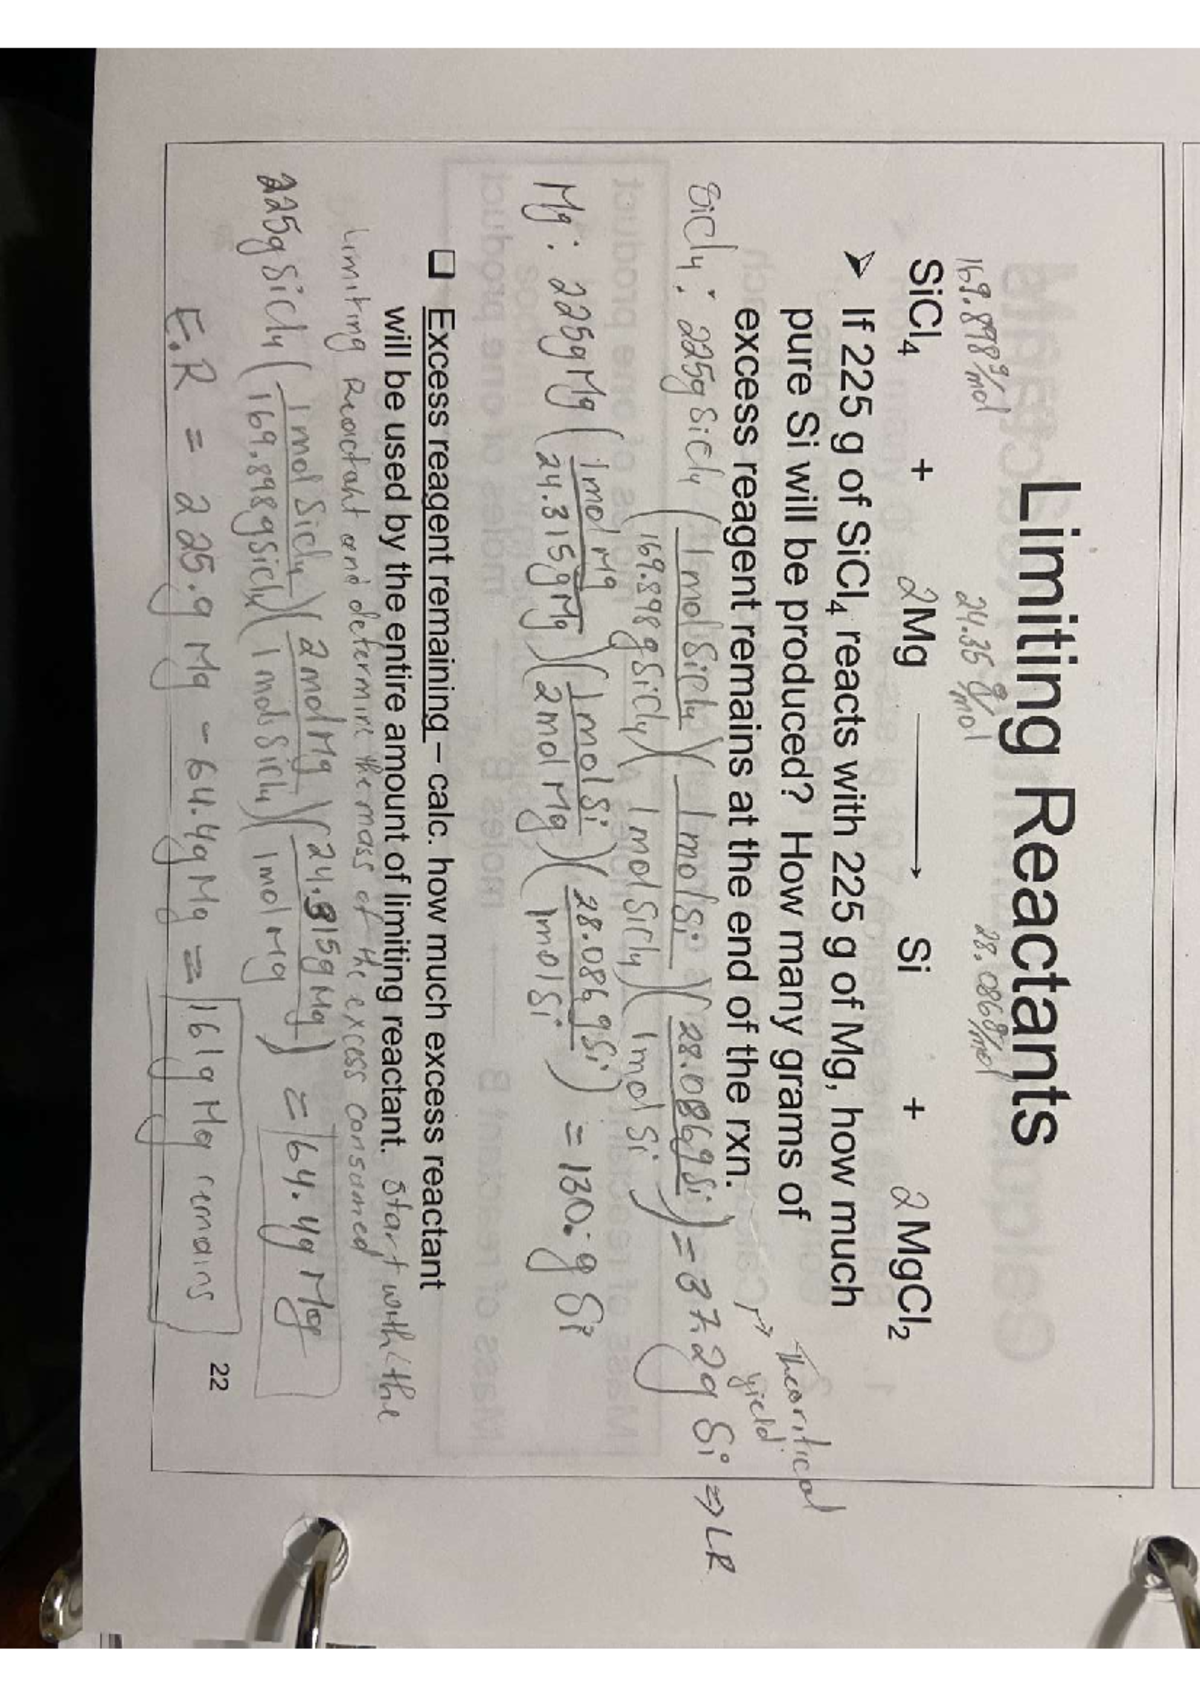 Limiting Reactants
169.898 g/mol 24.35 g/mol 28.086 g/mol
SiCl4 + 2Mg ⟶ Si + 2 MgCl2
➢ If 225 g of SiCl4 reacts with 225 g of Mg, how much
pure Si will be produced? How many grams of
excess reagent remains at the end of the rxn.
↱ Theoritical
yield
SiCl4: 225g SiCl4 (1mol SiCl4/169.898g SiCl4)(1mol Si/1mol SiCl4)(28.086g Si/1mol Si) = 37.2g Si ⇒ LR
Mg: 225g Mg (1mol Mg/24.315g Mg)(1mol Si/2mol Mg)(28.086g Si/1mol Si) = 130.g Si
❑ Excess reagent remaining – calc. how much excess reactant
will be used by the entire amount of limiting reactant. Start with the
Limiting Reactant and determine the mass of the excess consumed
225g SiCl4 (1mol SiCl4/169.898g SiCl4)(2mol Mg/1mol SiCl4)(24.315g Mg/1mol Mg) = 64.4g Mg
E.R = 225.g Mg - 64.4g Mg = 161g Mg remains
22